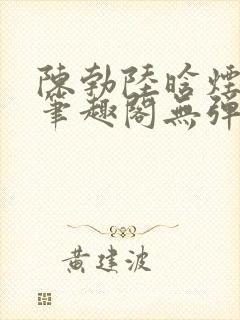 陳勃陸晗煙
筆趣閣無彈
黄建波